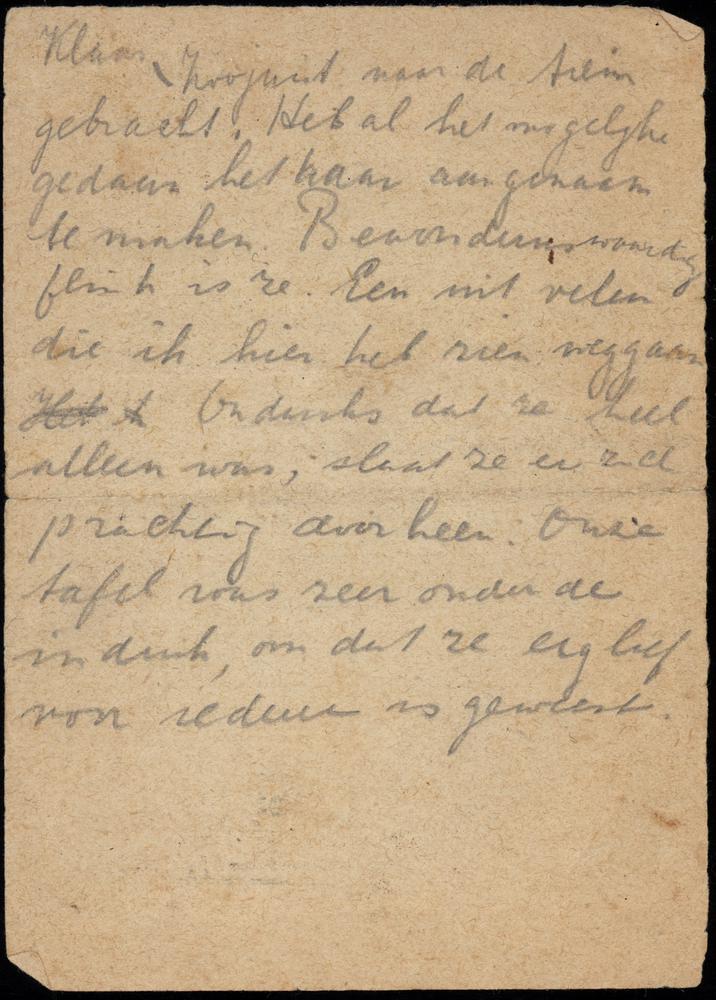 Klaas, zoojuist naar de trein
gebracht. Heb al het mogelijke
gedaan het haar aangenaam
te maken. Bewonderenswaardig
flink is ze. Een uit velen
die ik hier heb zien weggaan
Ondanks dat ze heel
alleen was, slaat ze er zich
prachtig doorheen. Onze
tafel was zeer onder de
indruk, om dat ze erg lief
voor iedereen is geweest.